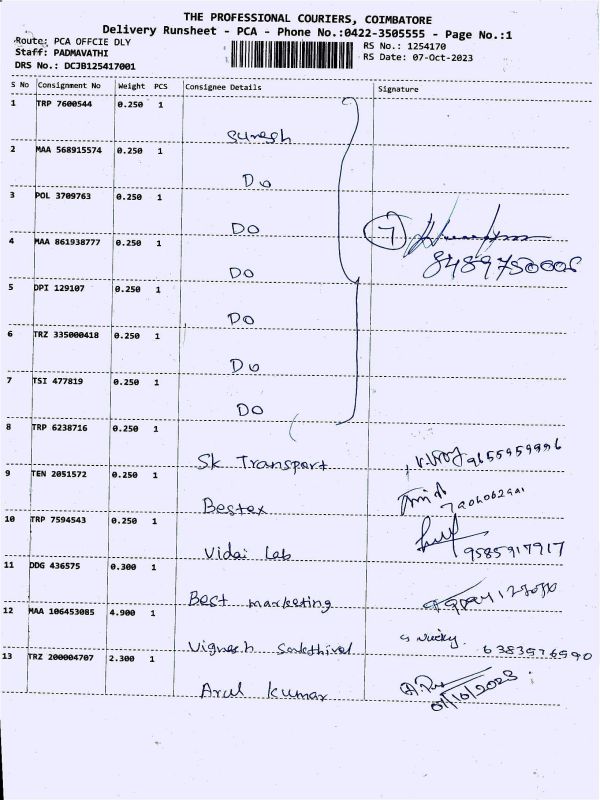 THE PROFESSIONAL COURIERS, COIMBATORE
Delivery Runsheet - PCA - Phone No.:0422-3505555 - Page No.:1
Route: PCA OFFCIE DLY
RS No.: 1254170
Staff: PADMAVATHI
RS Date: 07-Oct-2023
DRS No.: DCJB125417001
S No Consignment No Weight PCS Consignee Details Signature
1 TRP 7600544 0.250 1
Suresh
2 MAA 568915574 0.250 1
Do
3 POL 3709763 0.250 1
DO
7
4 MAA 861938777 0.250 1
DO
5 DPI 129107 0.250 1
DO
6 TRZ 335000418 0.250 1
Do
7 TSI 477819 0.250 1
DO
8 TRP 6238716 0.250 1
Sk Transport 9655959996
9 TEN 2051572 0.250 1
Bestex
10 TRP 7594543 0.250 1
Vidai Lab 9585917917
11 DDG 436575 0.300 1
Best marketing
12 MAA 106453085 4.900 1
Vignesh Sakthivel 6383976990
13 TRZ 200004707 2.300 1
Arul Kumar
07/10/2023